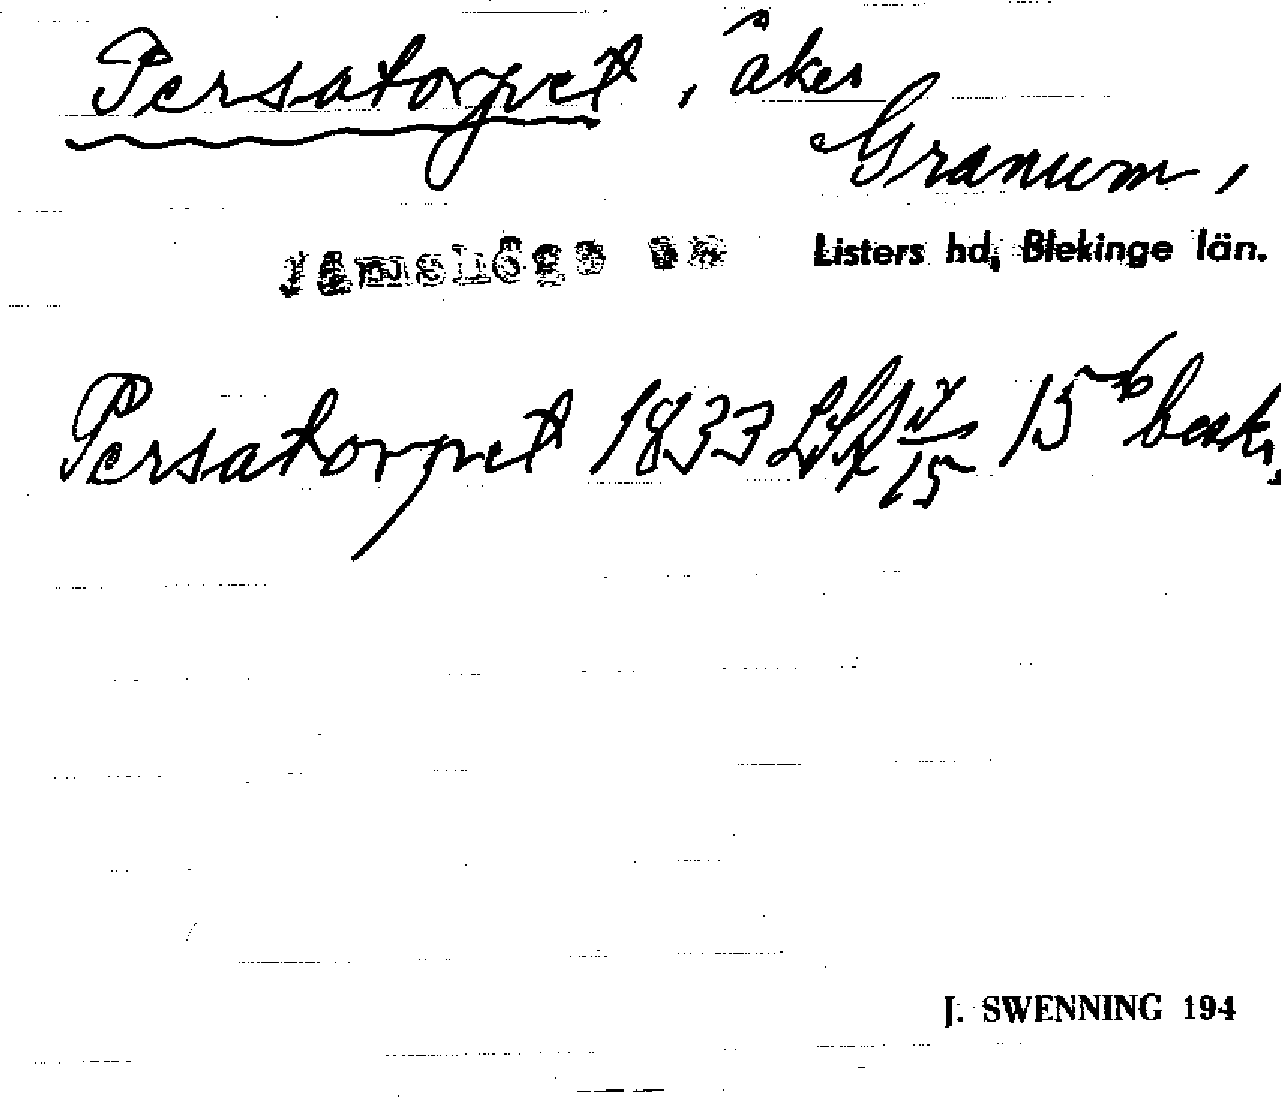 Persatorpet, åker
Granum,
Jämshögs sn Listers hd, Blekinge län.
Persatorpet 1833 LSA 15 beskr.
J. SWENNING 194